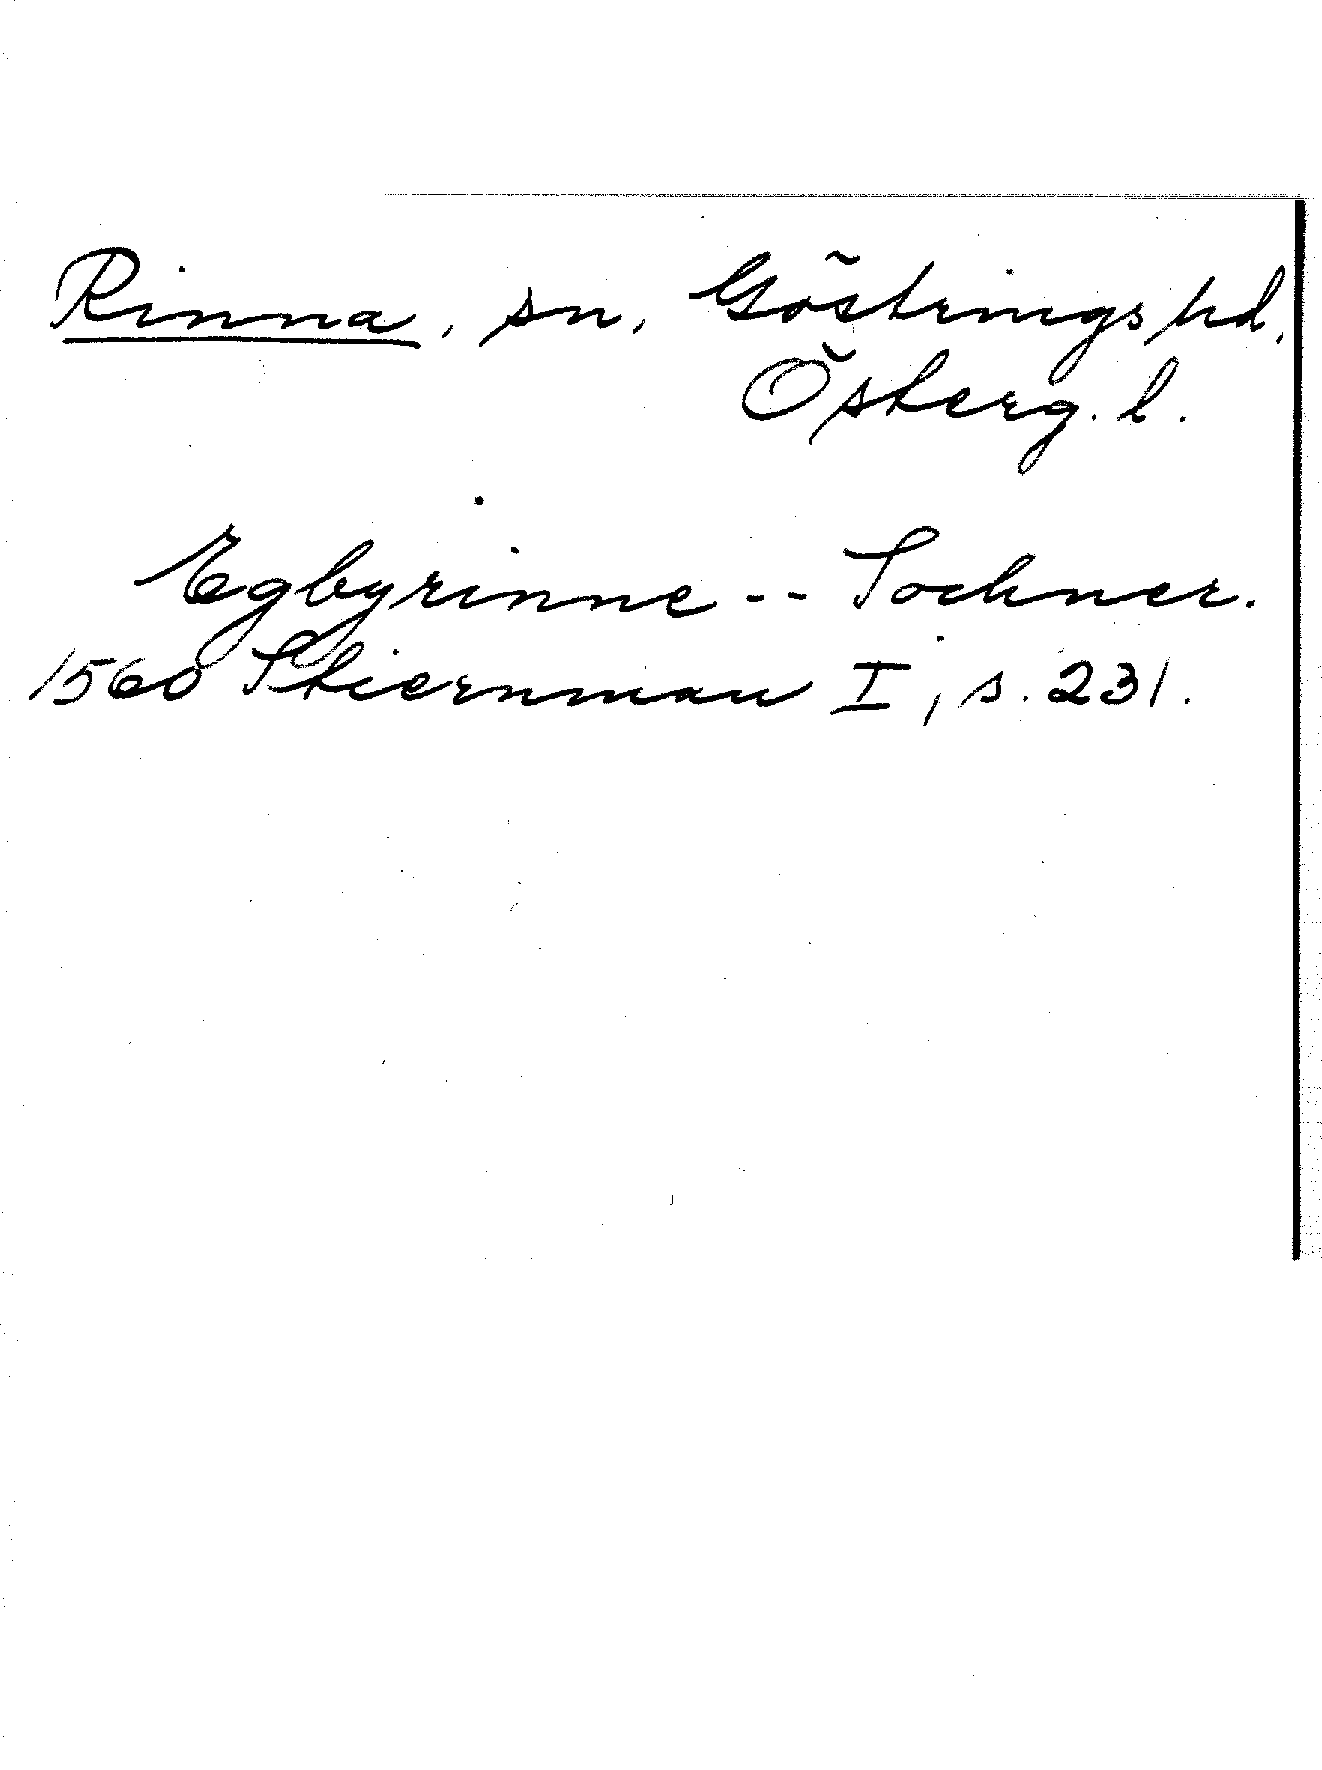 Rinna, sn, Göstrings hd,
Österg. l.
Egbyrinne -- Sochner.
1560 Stiernman I, s. 231.